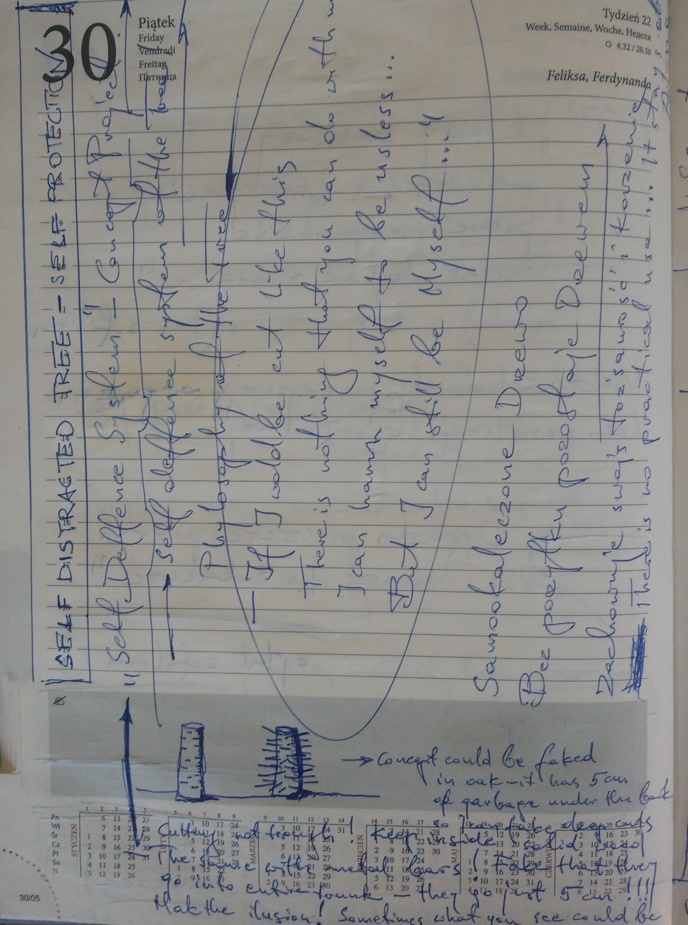 30
Piątek
Friday
Vendredi
Freitag
Пятница
Tydzień 22
Week, Semaine, Woche, Неделя
4.32 / 20.50
Feliksa, Ferdynanda
SELF DISTRACTED TREE - SELF PROTECTION
"Self Deffence System" - Concept Project
Self deffence system of the tree
Phylosophy of the tree
- If I wold be cut like this
There is nothing that you can do with m
I can harm myself to be usless...
But I can still be Myself..."
Samookaleczone Drzewo
Bez pożytku pozostaje Drzewem
Zachowuje swoją tożsamość i korzenie
There is no practical use... It stays
→ Concept could be faked
in oak - it has 5 cm
of garbage under the bark
so I can fake deep cuts
Cutting not deeply! Keep inside solid wood
The same with metal bars! Fake that they
go into entire trunk - they go just 5 cm!!!
Make the ilusion! Sometimes what you see could be
30/05